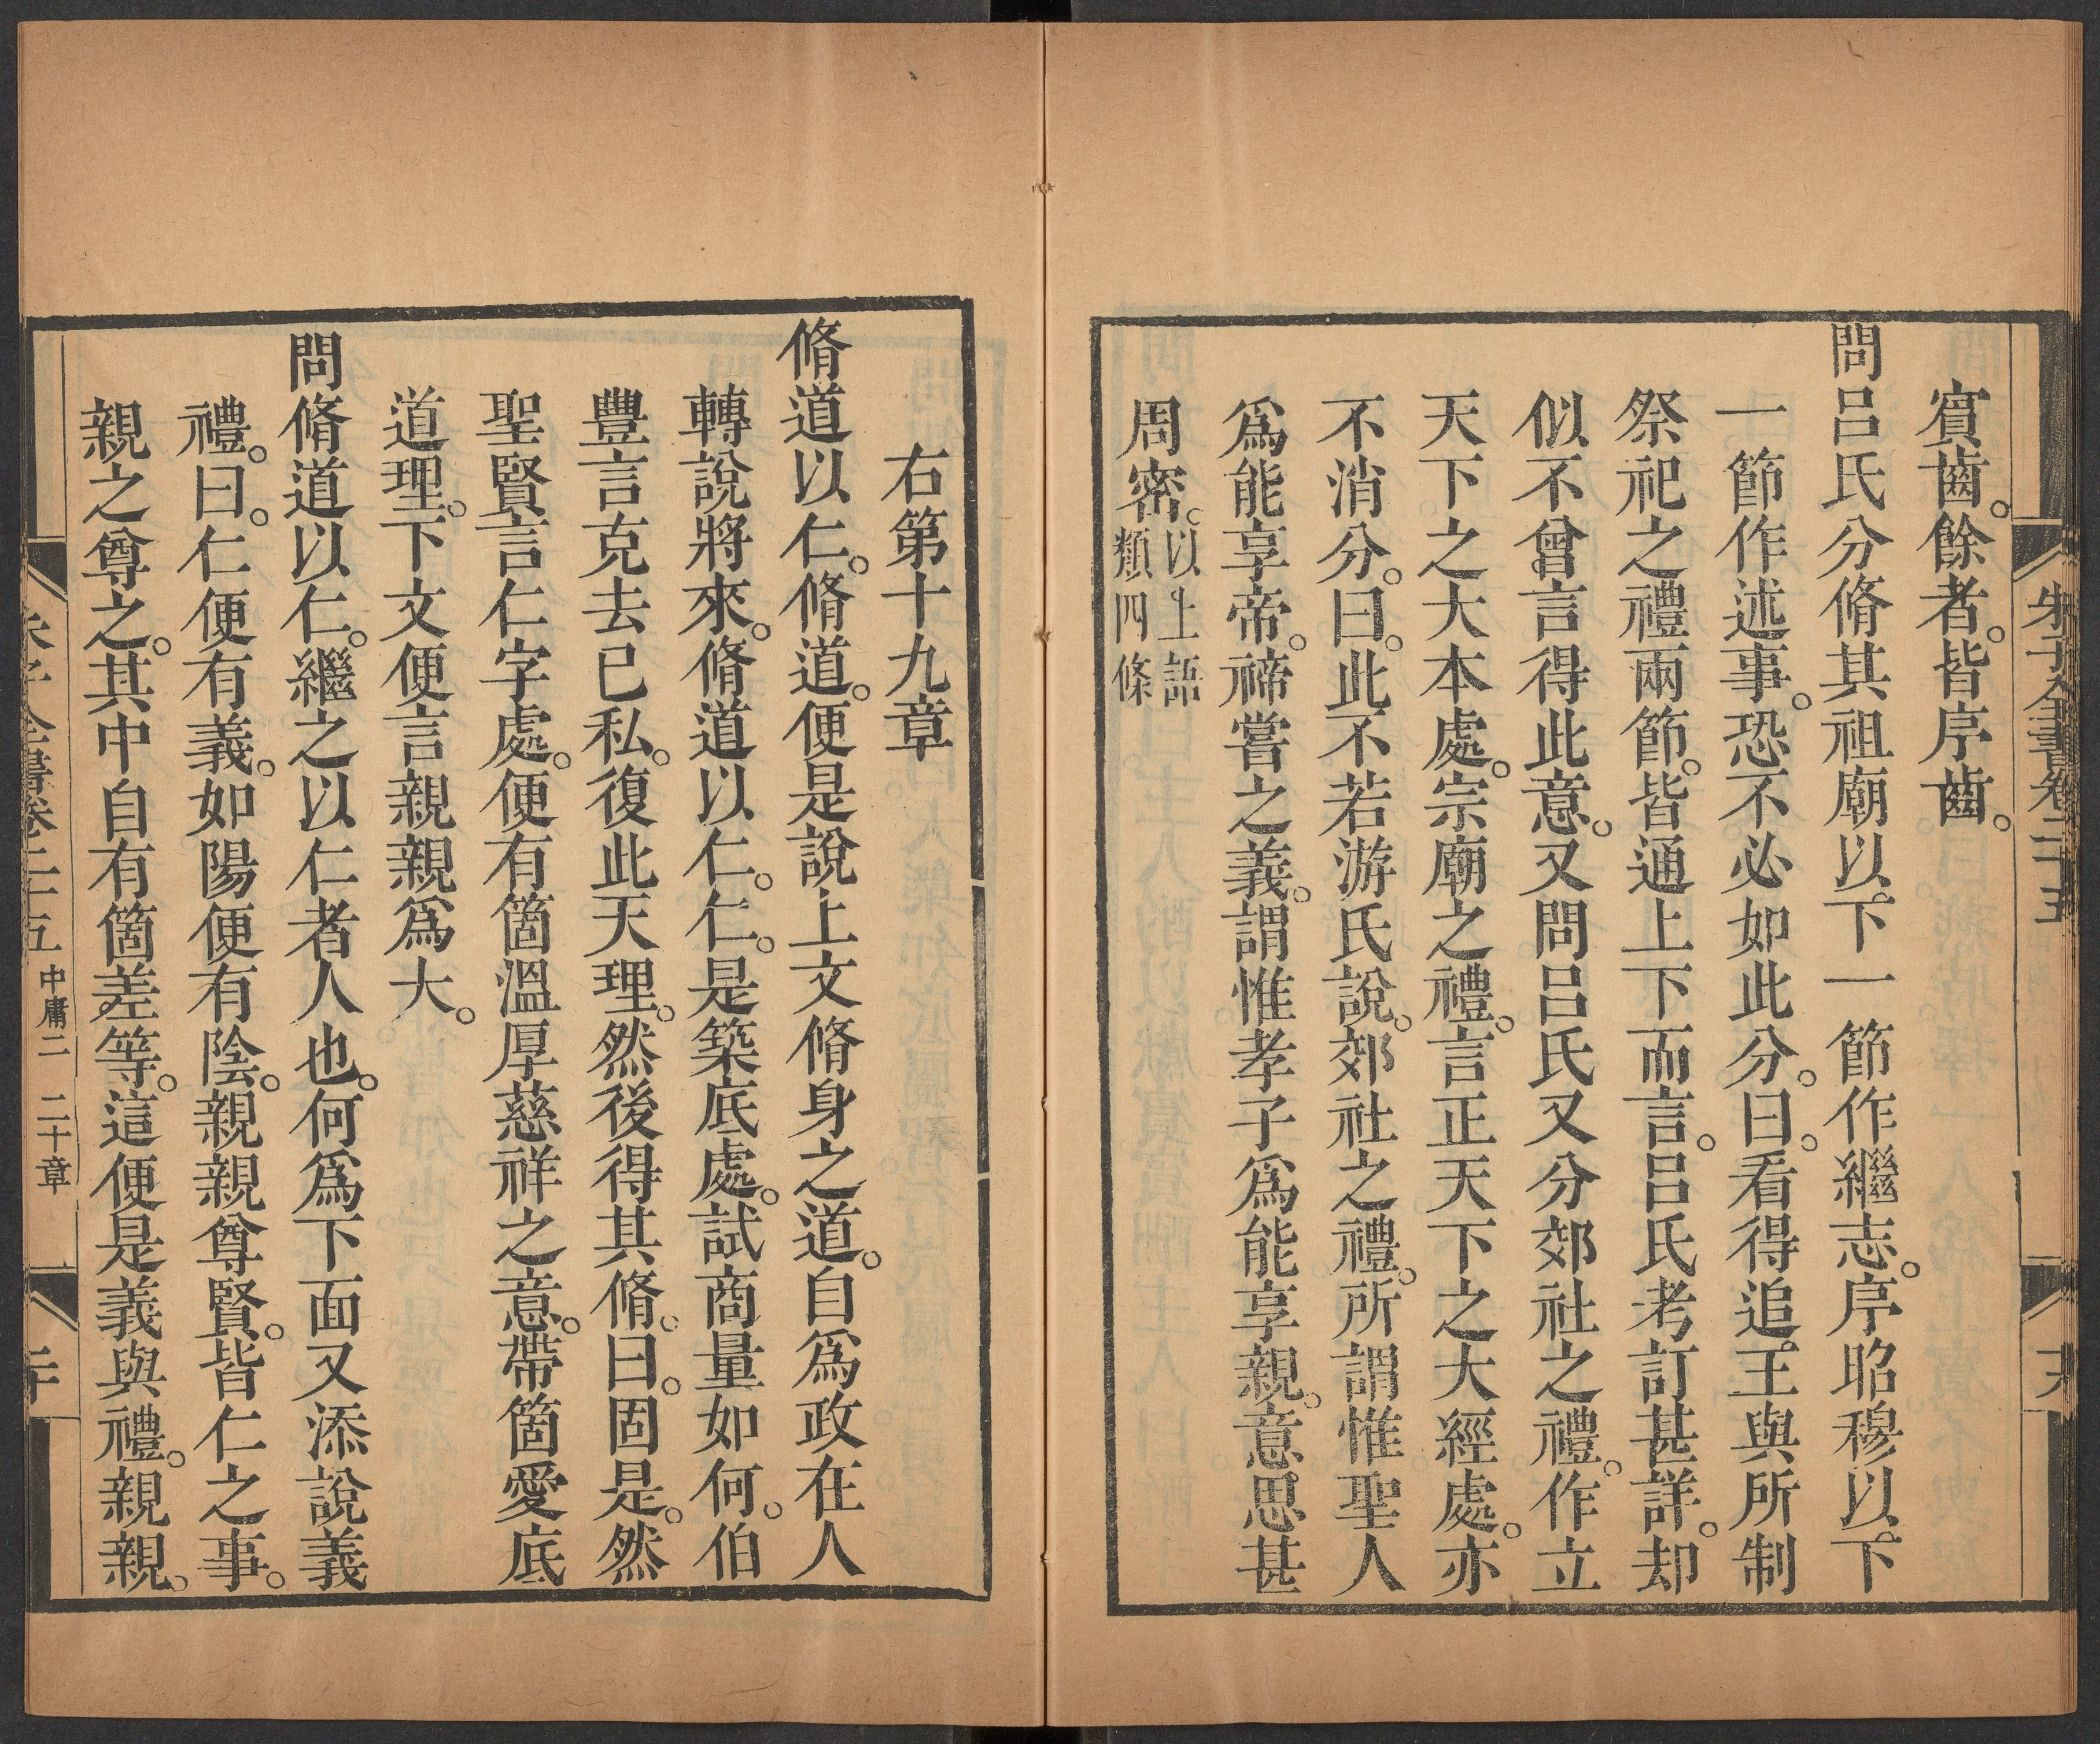 賔齒。餘者。皆序齒。
問呂氏分脩其祖廟以下一節作繼志。序昭穆以下
一節作述事。恐不必如此分。曰。看得追王與所制
祭祀之禮兩節。皆通上下而言。呂氏考訂甚詳。却
似不曾言得此意。又問呂氏又分郊社之禮。作立
天下之大本處。宗廟之禮。言正天下之大經處。亦
不消分。曰。此不若游氏說。郊社之禮。所謂惟聖人
爲能享帝。禘嘗之義。謂惟孝子爲能享親。意思甚
周密。以上語
類四條
朱子全書卷二十五
右第十九章
脩道以仁。脩道。便是說上文脩身之道。自爲政在人
轉說將來。脩道以仁。仁。是築底處。試商量如何。伯
豐言克去已私。復此天理。然後得其脩。曰。固是。然
聖賢言仁字處。便有箇溫厚慈祥之意。帶箇愛底
道理。下文便言親親爲大。
問脩道以仁。繼之以仁者人也。何爲下面又添說義
禮。曰。仁便有義。如陽便有陰。親親尊賢。皆仁之事。
親之尊之。其中自有箇差等。這便是義與禮。親親。
朱子全書卷二十五 中庸二 二十章 二十